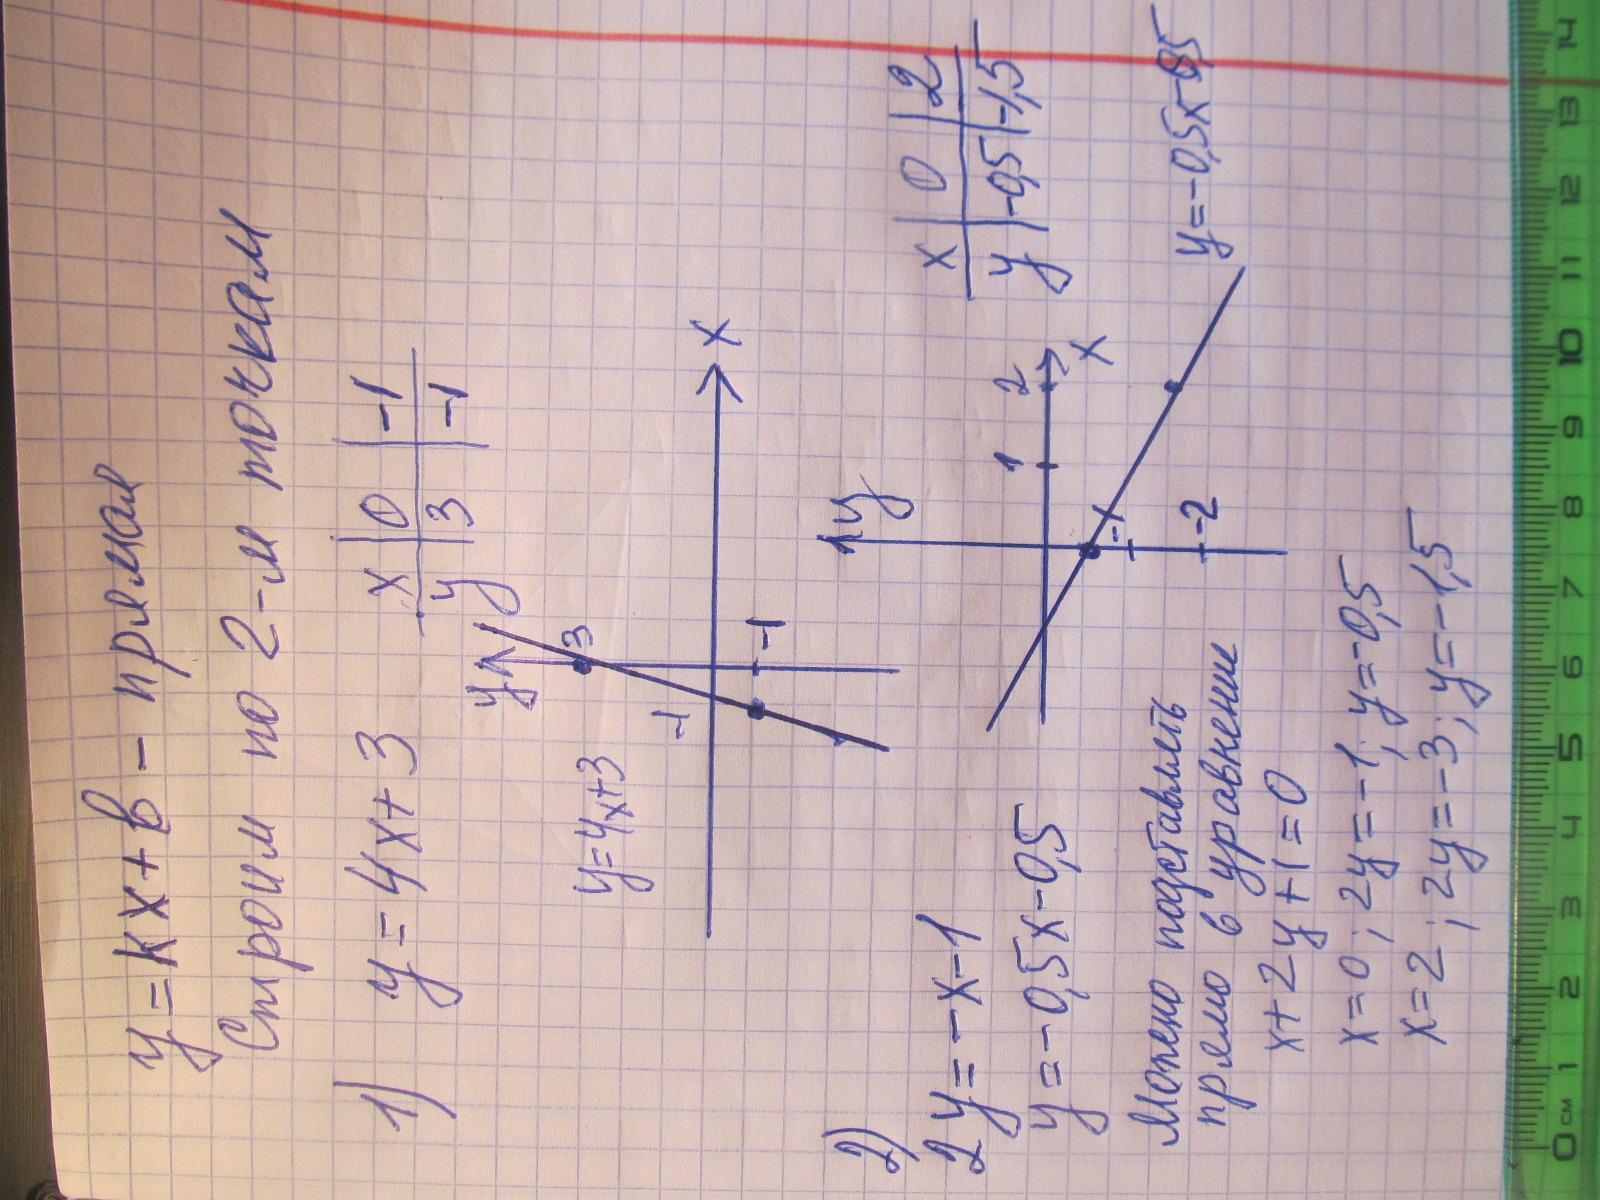 y = kx + b – прямая
Строим по 2-м точкам
1) y = 4x + 3
x | 0 | -1
y | 3 | -1
y
3
-1
-1
x
y=4x+3
2)
2y = -x-1
y = -0,5x-0,5
x | 0 | 2
y | -0,5 | -1,5
y
1
2
x
-1
-2
y=-0,5x-0,5
Можно подставлять
прямо в уравнение
x+2y+1=0
x=0; 2y=-1; y=-0,5
x=2; 2y=-3; y=-1,5
0 см 1 2 3 4 5 6 7 8 9 10 11 12 13 14